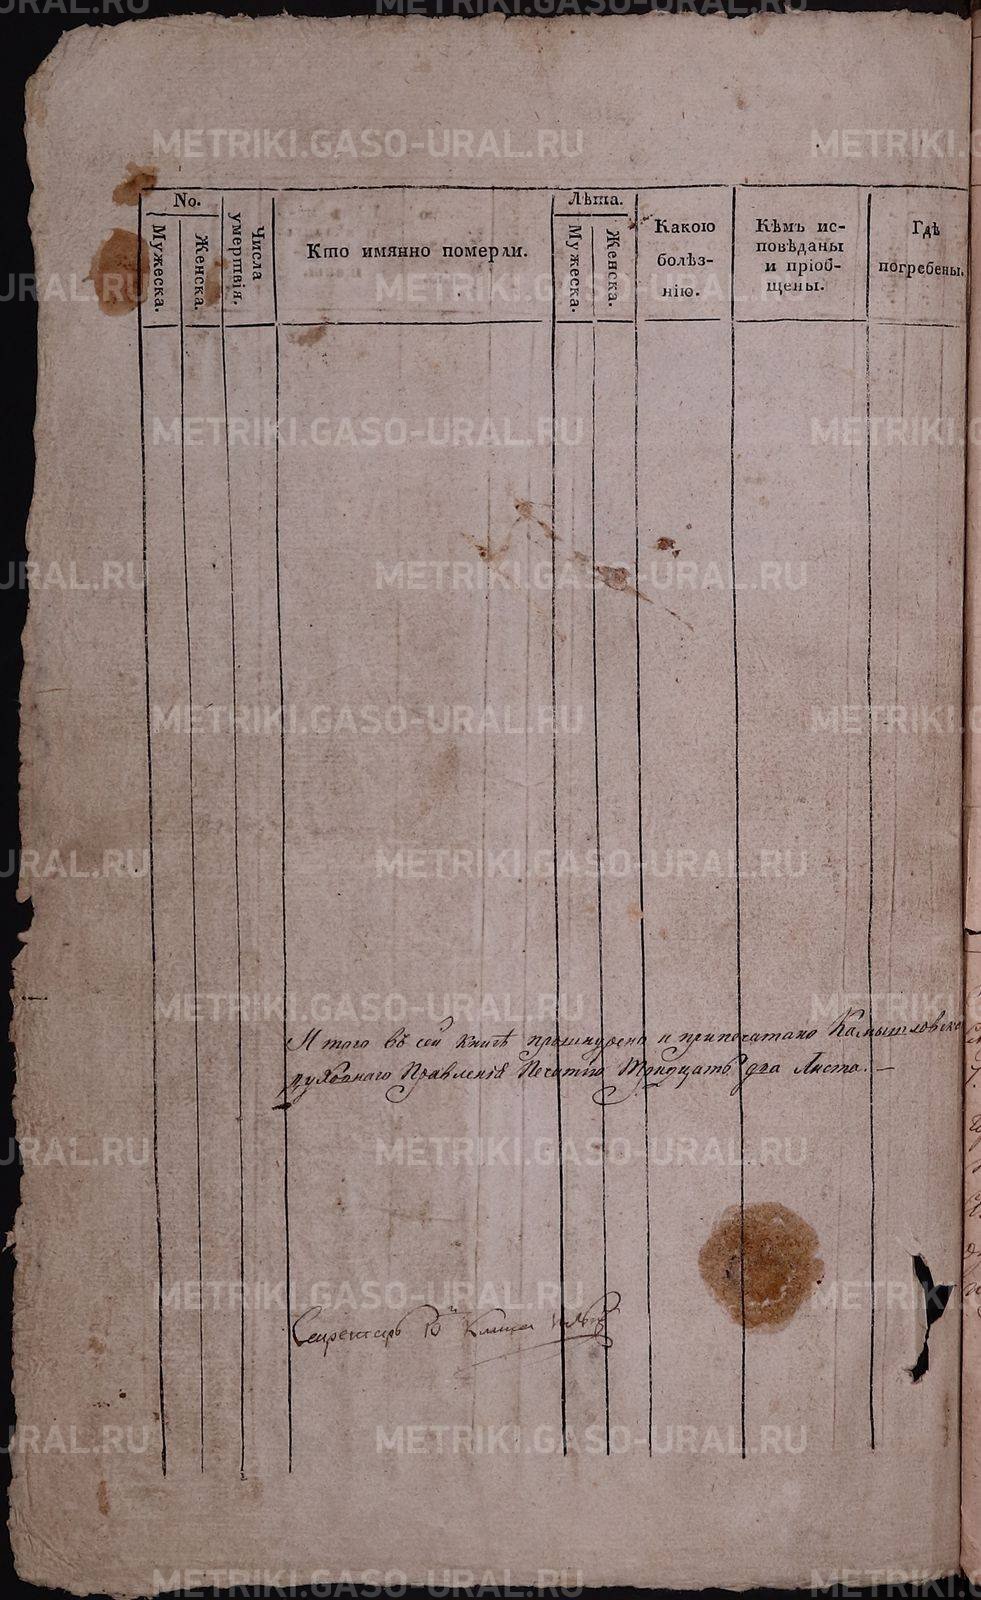 No.
Мужеска.
Женска.
Числа
умертвія.
Кто имянно померли.
Лѣта.
Мужеска.
Женска.
Какою
болѣз-
нію.
Кѣмъ ис-
повѣданы
и пріоб-
щены.
Гдѣ
погребены.
Итого въ сей книгѣ прошнурено и припечатано Камышловска
духовнаго Правленія Печатію Тридцать два Листа. —
Секретарь
METRIKI.GASO-URAL.RU